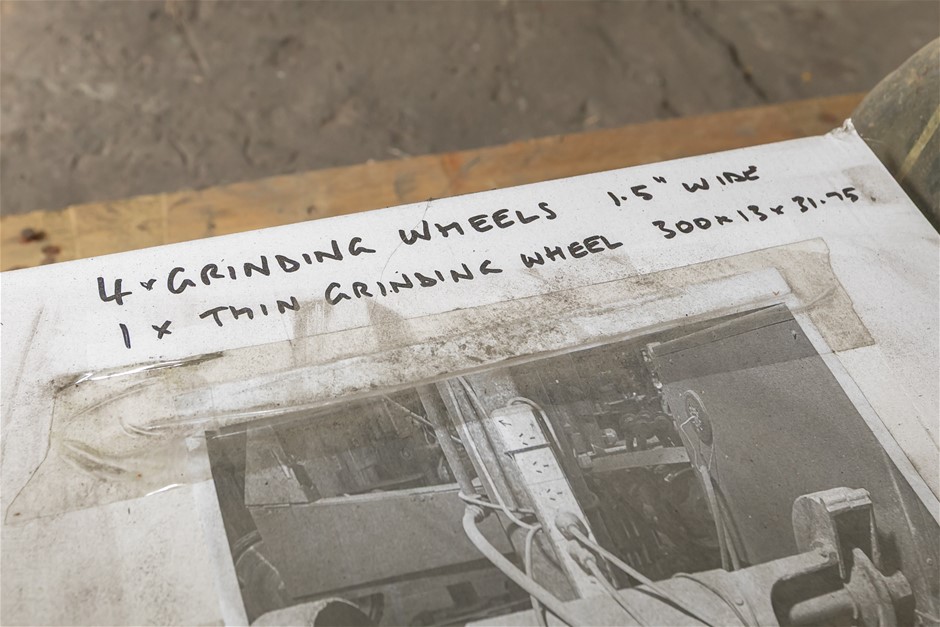 4 x GRINDING WHEELS 1.5" WIDE
1 x THIN GRINDING WHEEL 300x13x31.75